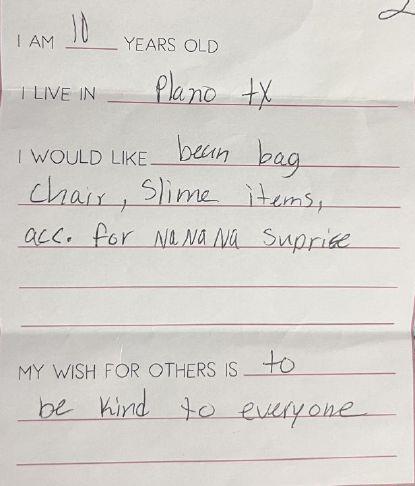 I AM 10 YEARS OLD
I LIVE IN Plano tX
I WOULD LIKE bean bag
chair, Slime items,
acc. for Na Na Na Suprise
MY WISH FOR OTHERS IS to
be kind to everyone